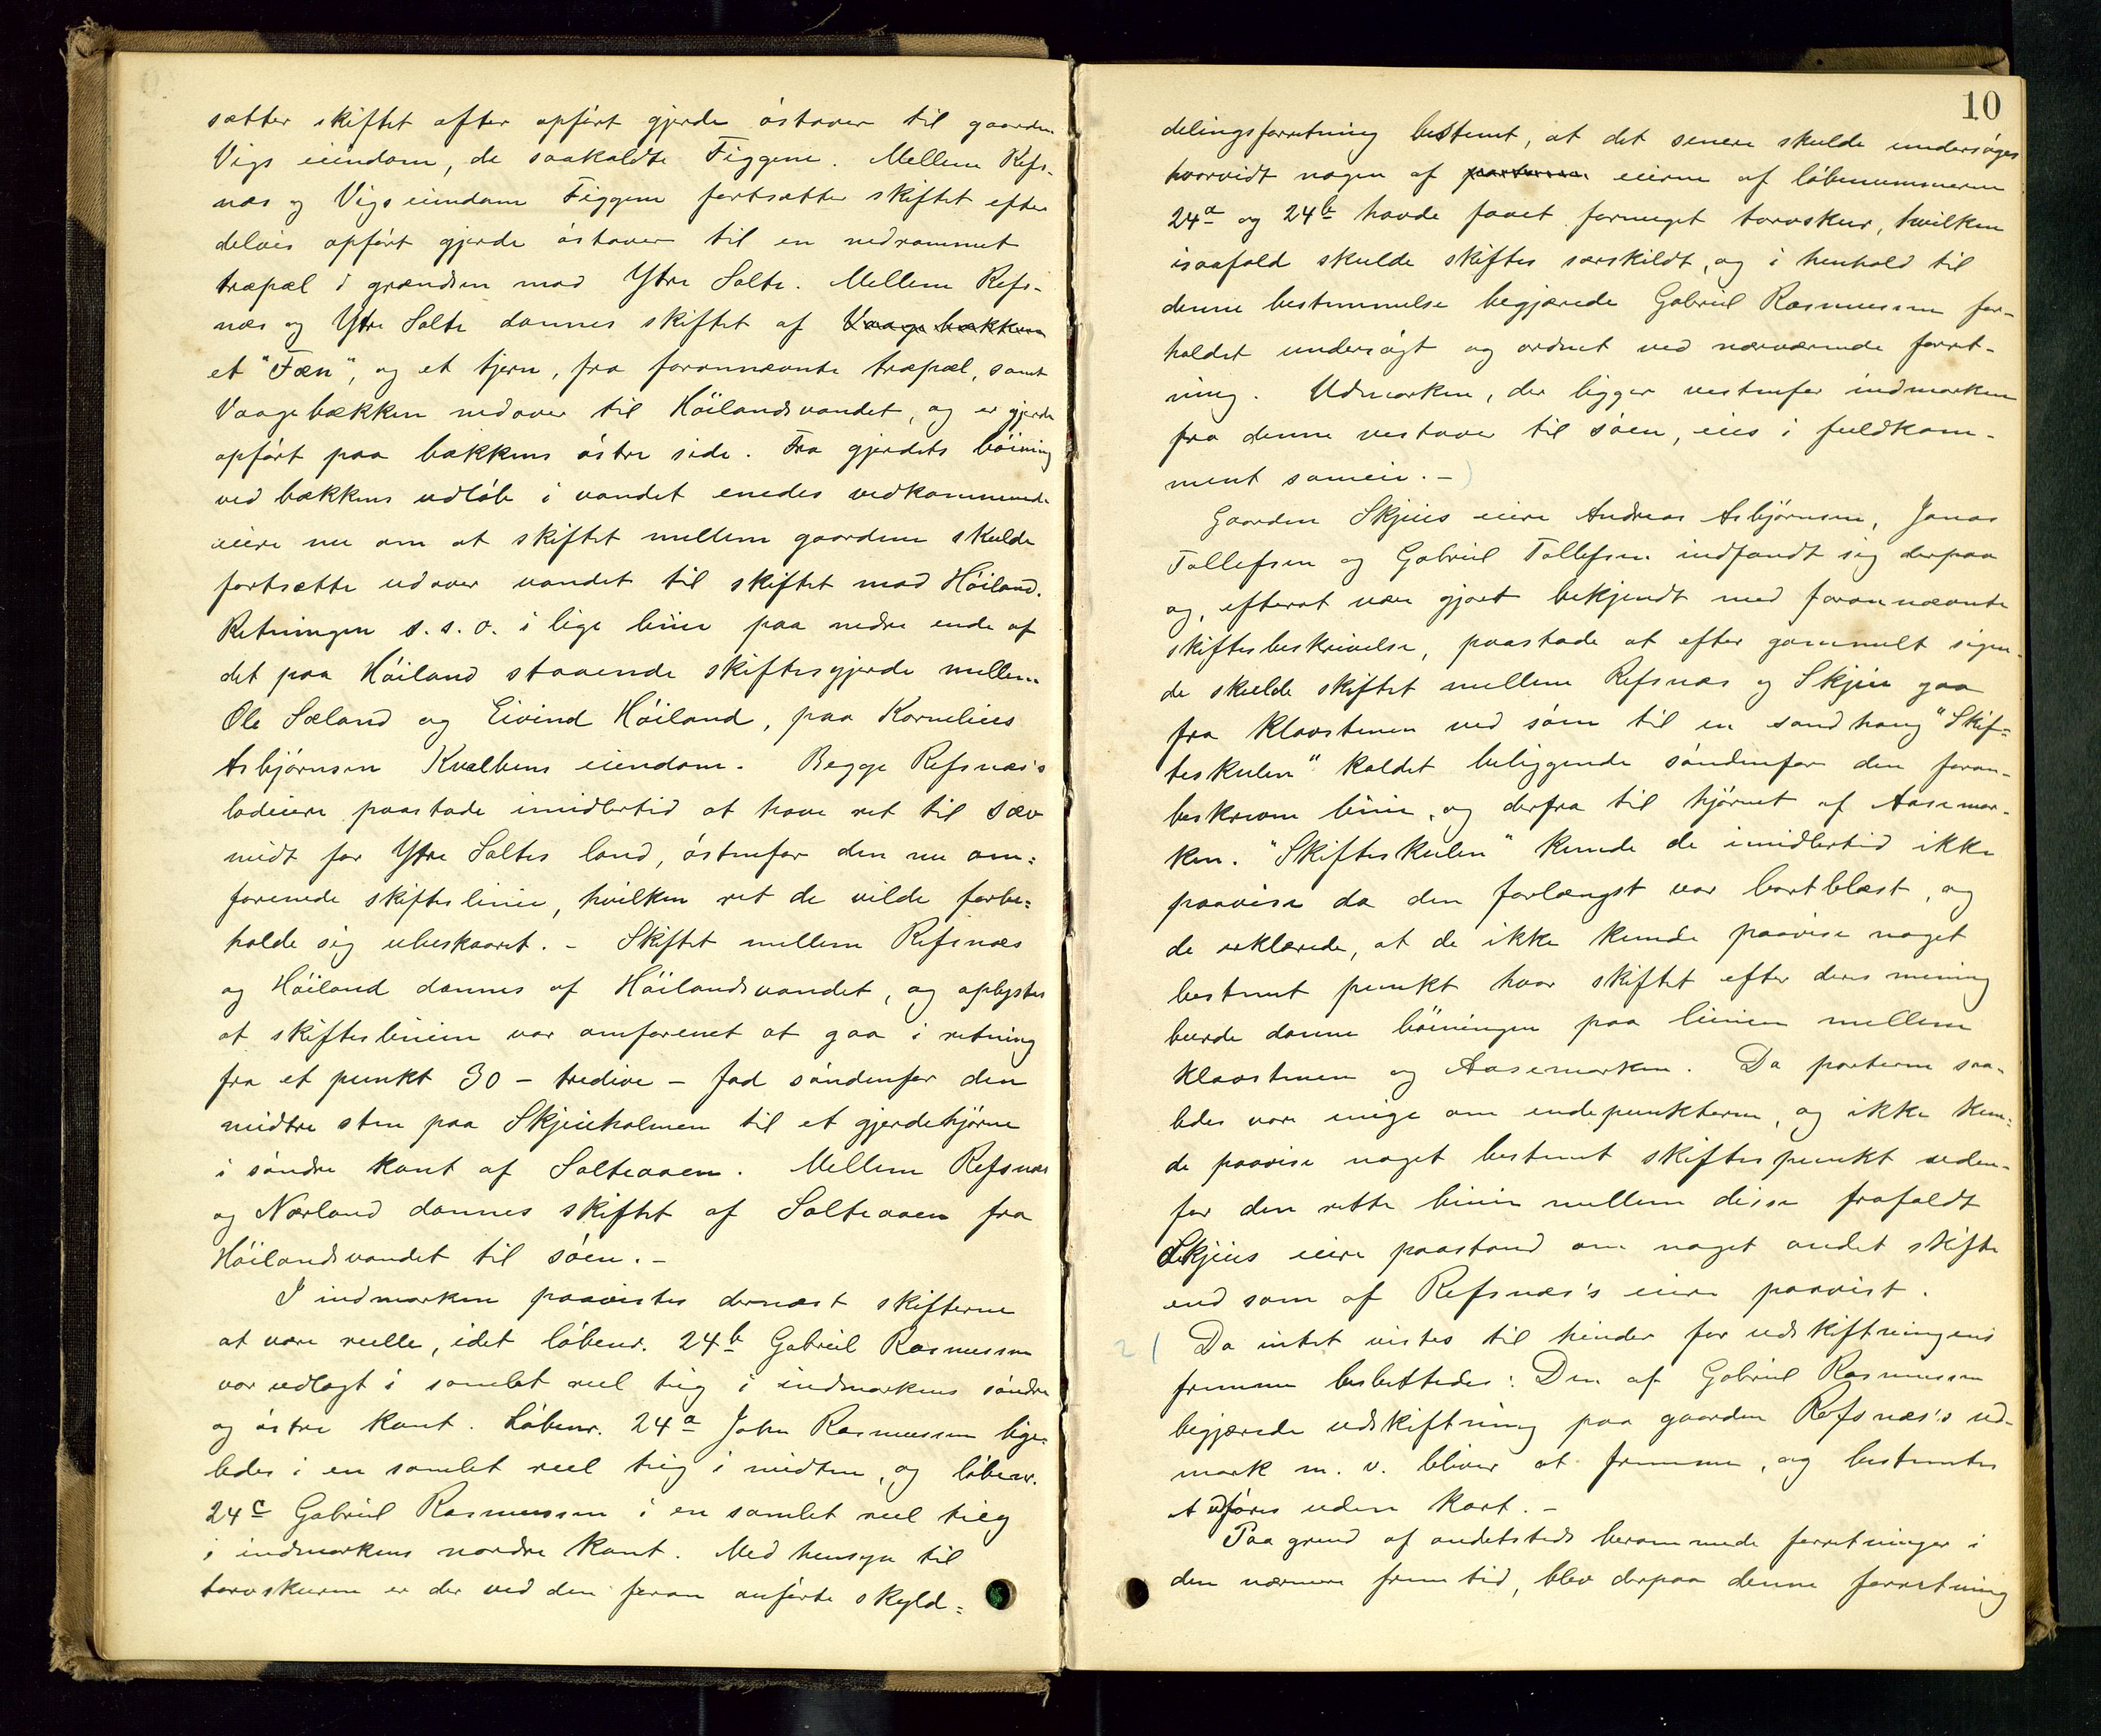 sætter skiftet efter opført gjerde østover til gaarden
Vigs eiendom, de saakaldte Figgene. Mellem Refs-
næs og Vigs eiendom Figgene fortsætter skiftet efter
delvis opført gjerde østover til en nedrammet
træpæl i grændsen mod Ytre Salte. Mellem Refs-
næs og Ytre Salte dannes skiftet af Vaage bækken
et "Fæn", og et tjern, fra forannævnte træpæl, samt
Vaagebækken nedover til Höilandsvandet, og er gjerde
opført paa bækkens østre side. Fra gjerdets böining
ved bækkens udløb i vandet enedes vedkommende
eiere nu om at skiftet mellem gaardene skulde
fortsætte udover vandet til skiftet mod Höiland.
Retningen s. s. o. i lige linie paa nedre ende af
det paa Höiland staaende skiftesgjerde mellem
Ole Sæland og Eivind Höiland, paa Kornelius
Asbjørnsen Kvalbens eiendom. Begge Refsnæs's
lodeiere paastode imidlertid at have ret til sæv
midt for Ytre Saltes land, østenfor den nu om=
forenede skifteslinie, hvilken ret de vilde forbe=
holde sig ubeskaaret. - Skiftet mellem Refsnæs
og Höiland dannes af Höilandsvandet, og oplystes
at skifteslinien var omforenet at gaa i retning
fra et punkt 30 - tredive - fod søndenfor den
midtre sten paa Skjeieholmen til et gjerdehjørne
i søndre kant af Salteaaen. Mellem Refsnæs
og Nærland dannes skiftet af Salteaaen fra
Höilandsvandet til søen. -
I indmarken paavistes dernæst skifterne
at være reelle, idet löbenr. 24b Gabriel Rasmussen
var udlagt i samlet reel teig i indmarkens søndre
og østre kant. Löbenr. 24a John Rasmussen lige-
ledes i en samlet reel teig i midten, og löbenr.
24c Gabriel Rasmussen i en samlet reel teig
i indmarkens nordre kant. Med hensyn til
torvskuren er der ved den foran anførte skyld=
10
delingsforretning bestemt, at det senere skulde undersøges
hvorvidt nogen af parterne eierne af löbenummerne
24a og 24b havde faaet formeget torvskur, hvilken
isaafald skulde skiftes særskildt, og i henhold til
denne bestemmelse begjærede Gabriel Rasmussen for-
holdet undersøgt og ordnet ved nærværende forret-
ning. Udmarken, der ligger vestenfor indmarken
fra denne vestover til søen, eies i fuldkom-
ment sameie. -
Gaarden Skjeies eiere Andreas Asbjørnsen, Jonas
Tollefsen og Gabriel Tollefsen indfandt sig derpaa
og, efterat være gjort bekjendt med forannævnte
skiftesbeskrivelse, paastode at efter gammelt sigen-
de skulde skiftet mellem Refsnæs og Skjeie gaa
fra Klaastenen ved søen til en sandhaug "Skif=
teskulen" kaldet beliggende søndenfor den foran-
beskrevne linie, og derfra til hjørnet af Aasemar-
ken. "Skifteskulen" kunde de imidlertid ikke
paavise da den forlængst var bortblæst, og
de erklærede, at de ikke kunde paavise noget
bestemt punkt hvor skiftet efter deres mening
burde danne böiningen paa linien mellem
Klaastenen og Aasemarken. Da parterne saa-
ledes vare enige om endepunkterne, og ikke kun=
de paavise noget bestemt skiftespunkt uden-
for den rette linie mellem disse frafaldt
Skjeies eiere paastand om noget andet skifte
end som af Refsnæs's eiere paavist.
2 ( Da intet vistes til hinder for udskiftningens
fremme besluttedes: Den af Gabriel Rasmussen
begjærede udskiftning paa gaarden Refsnæs's ud-
mark m. v. bliver at fremme, og bestemtes
at udføres uden kart. -
Paa grund af andetsteds berammede forretninger i
den nærmere fremtid, blev derpaa denne forretning